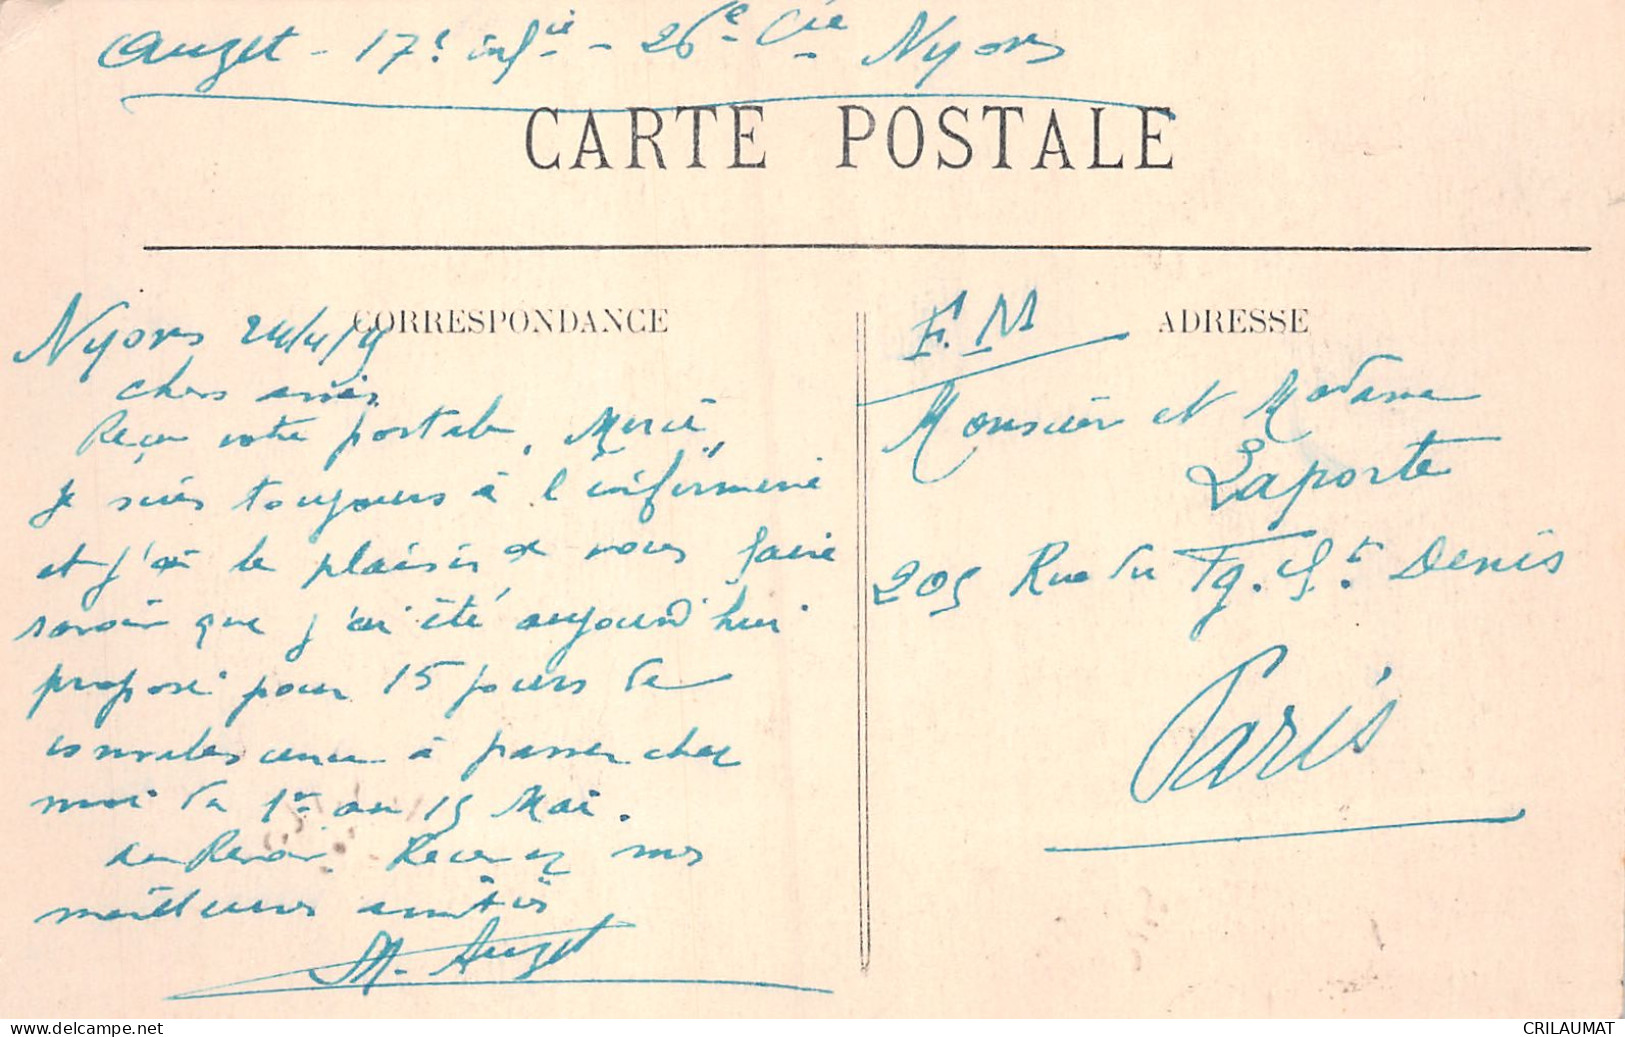 Auzet - 17e infie - 26e Cie Nyons
CARTE POSTALE
CORRESPONDANCE
Nyons 24/4/19
chers amis
Reçu votre postale, Merci,
Je suis toujours à l'infirmerie
et j'ai le plaisir de vous faire
savoir que j'ai été aujourd'hui
proposé pour 15 jours de
convalescence à passer chez
moi du 1er au 15 Mai.
Au Revoir. Recevez mes
meilleures amitiés
M. Auzet
F. M
ADRESSE
Monsieur et Madame
Laporte
205 Rue du Fg. St. Denis
Paris
www.delcampe.net
CRILAUMAT